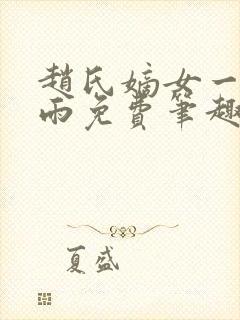 趙氏嫡女一
雨免費筆趣
夏盛